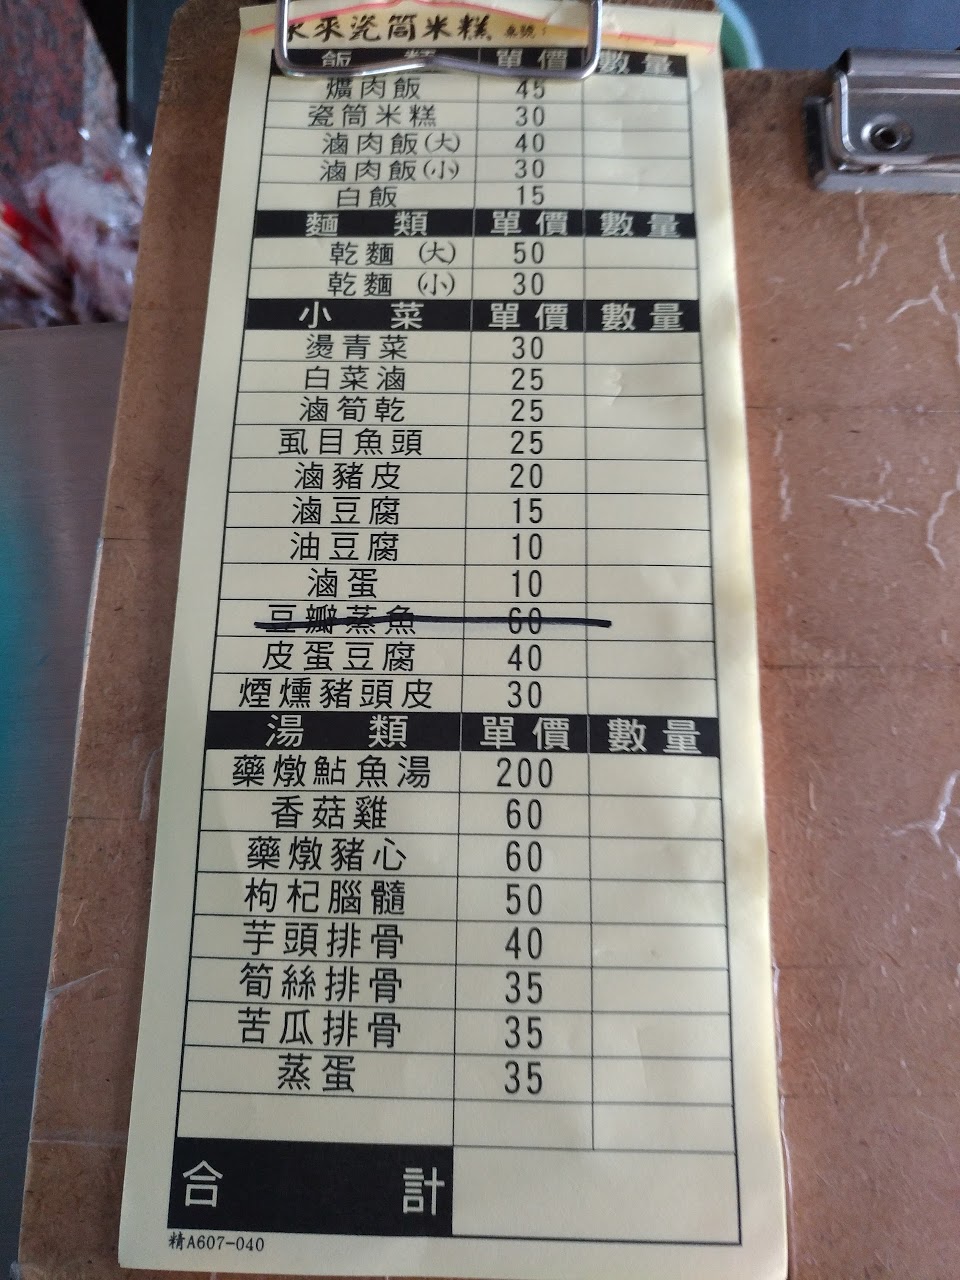 來瓷筒米糕 桌號:
飯 類 單價 數量
爌肉飯 45
瓷筒米糕 30
滷肉飯(大) 40
滷肉飯(小) 30
白飯 15
麵 類 單價 數量
乾麵 (大) 50
乾麵 (小) 30
小 菜 單價 數量
燙青菜 30
白菜滷 25
滷筍乾 25
虱目魚頭 25
滷豬皮 20
滷豆腐 15
油豆腐 10
滷蛋 10
豆瓣蒸魚 60
皮蛋豆腐 40
煙燻豬頭皮 30
湯 類 單價 數量
藥燉鮎魚湯 200
香菇雞 60
藥燉豬心 60
枸杞腦髓 50
芋頭排骨 40
筍絲排骨 35
苦瓜排骨 35
蒸蛋 35
合 計
精A607-040